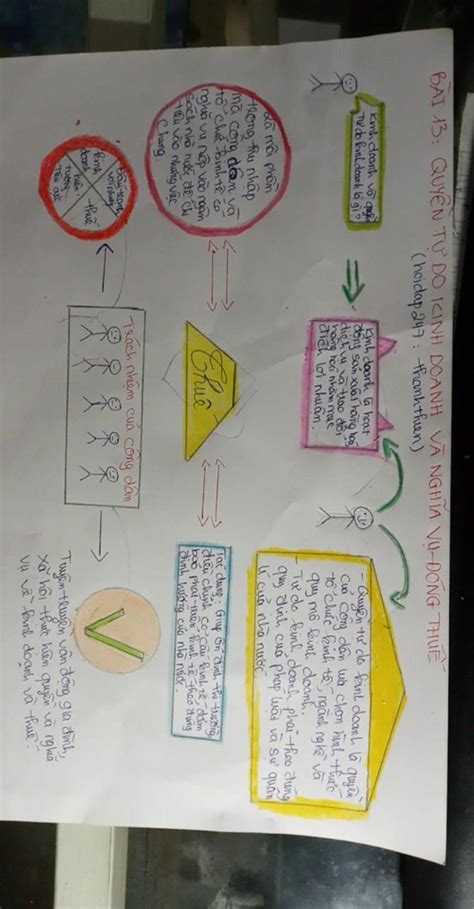 BÀI 13: QUYỀN TỰ DO KINH DOANH VÀ NGHĨA VỤ ĐÓNG THUẾ
(hoidap247: thanhthuen)
Kinh doanh và quyền
tự do kinh doanh là gì?
Kinh doanh là hoạt
động sản xuất hàng hoá
dịch vụ và trao đổi
hàng hoá nhằm mục
đích lợi nhuận.
- Quyền tự do kinh doanh là quyền
của công dân lựa chọn hình thức
tổ chức kinh tế, ngành nghề và
quy mô kinh doanh.
- Tự do kinh doanh phải theo đúng
quy định của pháp luật và sự quản
lí của nhà nước.
là một phần
trong thu nhập
mà công dân và
tổ chức kinh tế có
nghĩa vụ nộp vào ngân
sách nhà nước để chi
tiêu vào những việc
chung.
Thuế
Tác dụng: ổn định thị trường,
điều chỉnh cơ cấu kinh tế, đảm
bảo phát triển kinh tế theo đúng
định hướng của nhà nước.
Đấu tranh
với những
hiện
tượng
tiêu cực
kinh
doanh
thuế
Trách nhiệm của công dân
Tuyên truyền vận động gia đình,
xã hội thực hiện quyền và nghĩa
vụ về kinh doanh và thuế.